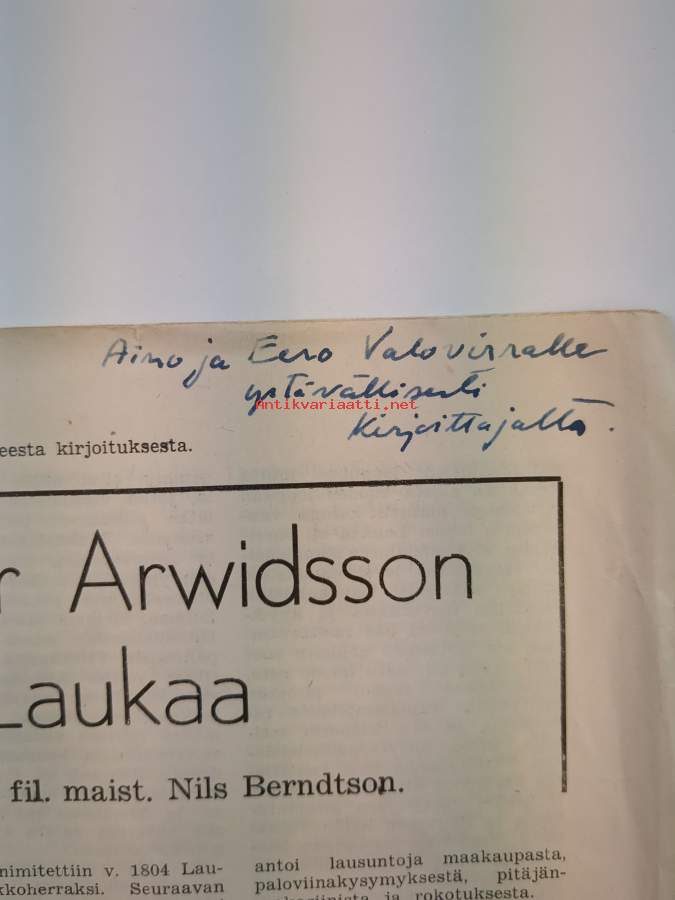 Aino ja Eero Valovirralle
ystävällisesti
antikvariaatti.net
Kirjoittajalta.
eesta kirjoituksesta.
r Arwidsson
Laukaa
fil. maist. Nils Berndtson.
nimitettiin v. 1804 Lau-
kkoherraksi. Seuraavan
antoi lausuntoja maakaupasta,
paloviinakysymyksestä, pitäjän-
ja rokotuksesta.